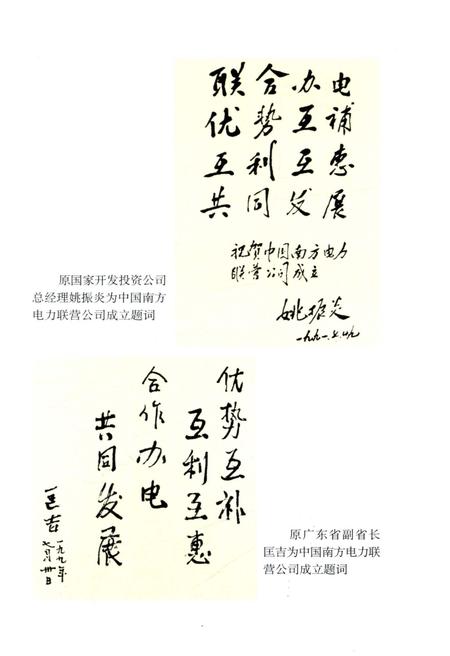 联合办电
优势互补
互利互惠
共同发展
祝贺中国南方电力
联营公司成立
姚振炎
一九九一.七.廿九
原国家开发投资公司
总经理姚振炎为中国南方
电力联营公司成立题词
优势互补
互利互惠
合作办电
共同发展
匡吉
一九九一年
七月卅日
原广东省副省长
匡吉为中国南方电力联
营公司成立题词